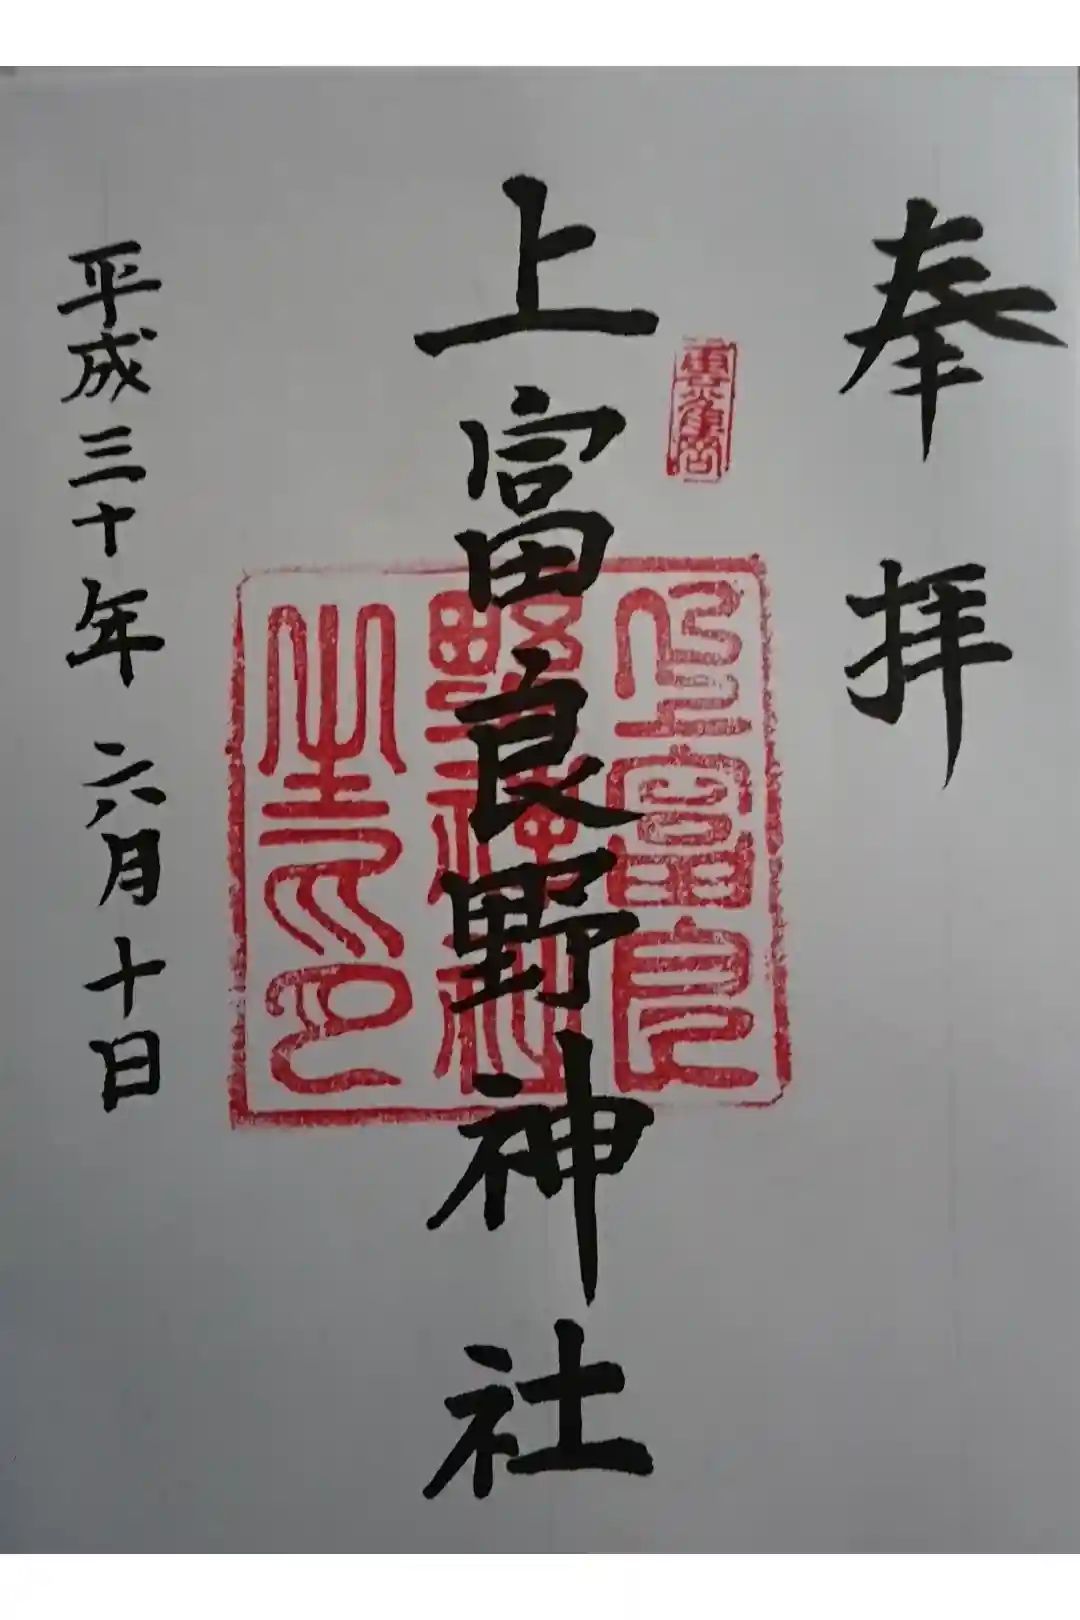 奉拝
上富良野神社
上富良
野神社
之印
平成三十年六月十日